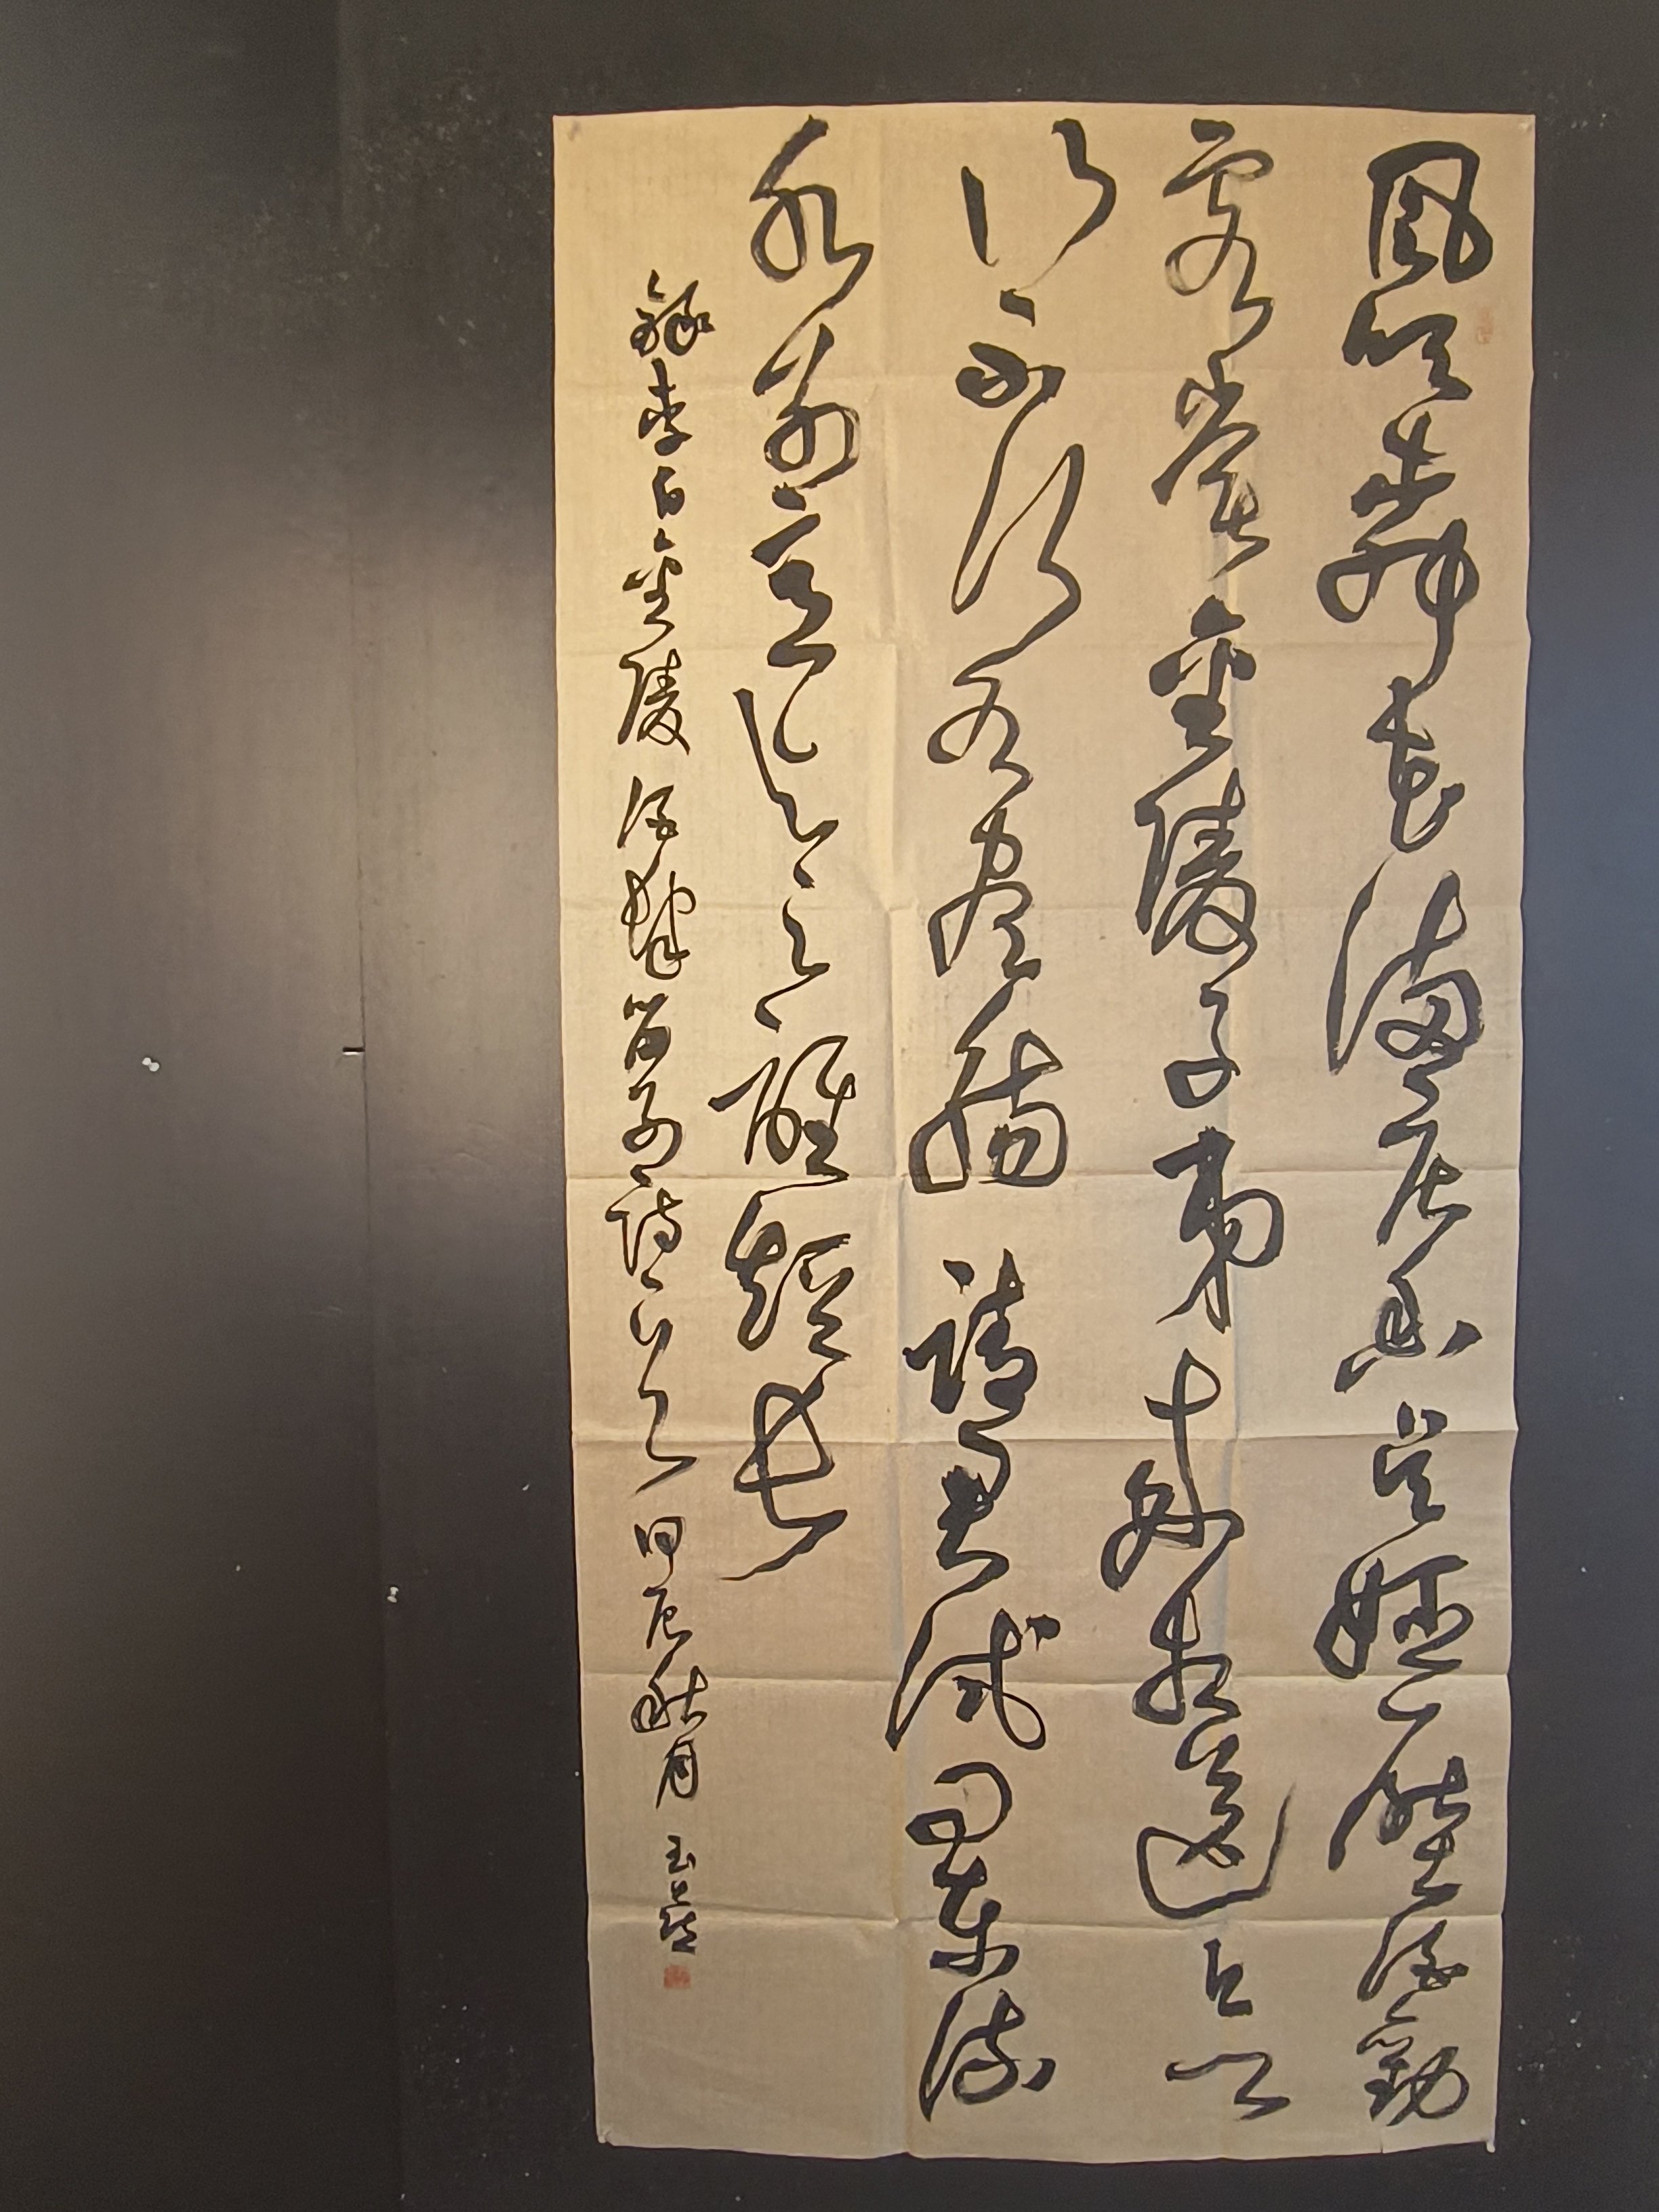 風吹花滿店香吳姬壓酒勸
客嘗金陵子弟來相送欲
行不行各盡觴請君試問東流
水別意與之誰短長
錄李白金陵酒肆留別詩一首甲辰秋月玉